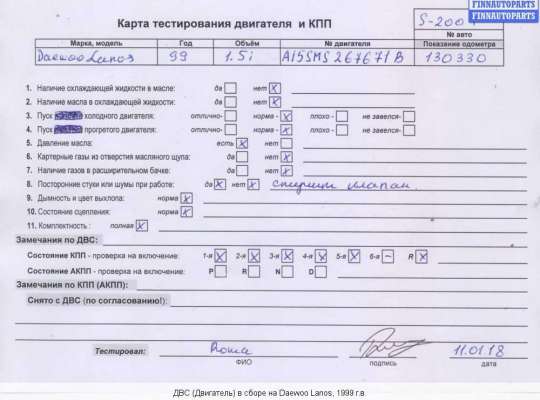 FINNAUTOPARTS
FINNAUTOPARTS
Карта тестирования двигателя и КПП
S-200
№ авто
Марка, модель Год Объём № двигателя Показание одометра
Daewoo Lanos 99 1.5i A15SMS 267671B 130330
1. Наличие охлаждающей жидкости в масле: да нет X
2. Наличие масла в охлаждающей жидкости: да нет X
3. Пуск холодного двигателя: отлично- норма - X плохо - не завелся-
4. Пуск прогретого двигателя: отлично- норма - X плохо - не завелся-
5. Давление масла: есть X нет
6. Картерные газы из отверстия масляного щупа: да нет X
7. Наличие газов в расширительном бачке: да нет X
8. Посторонние стуки или шумы при работе: да X нет X клапан.
9. Дымность и цвет выхлопа: норма X
10. Состояние сцепления: норма X
11. Комплектность : полная X
Замечания по ДВС:
Состояние КПП - проверка на включение: 1-я X 2-я X 3-я X 4-я X 5-я X 6-я – R X
Состояние АКПП - проверка на включение: P R N D
Замечания по КПП (АКПП):
Снято с ДВС (по согласованию!):
Тестировал: Roma 11.01.18
ФИО подпись дата
ДВС (Двигатель) в сборе на Daewoo Lanos, 1999 г.в.